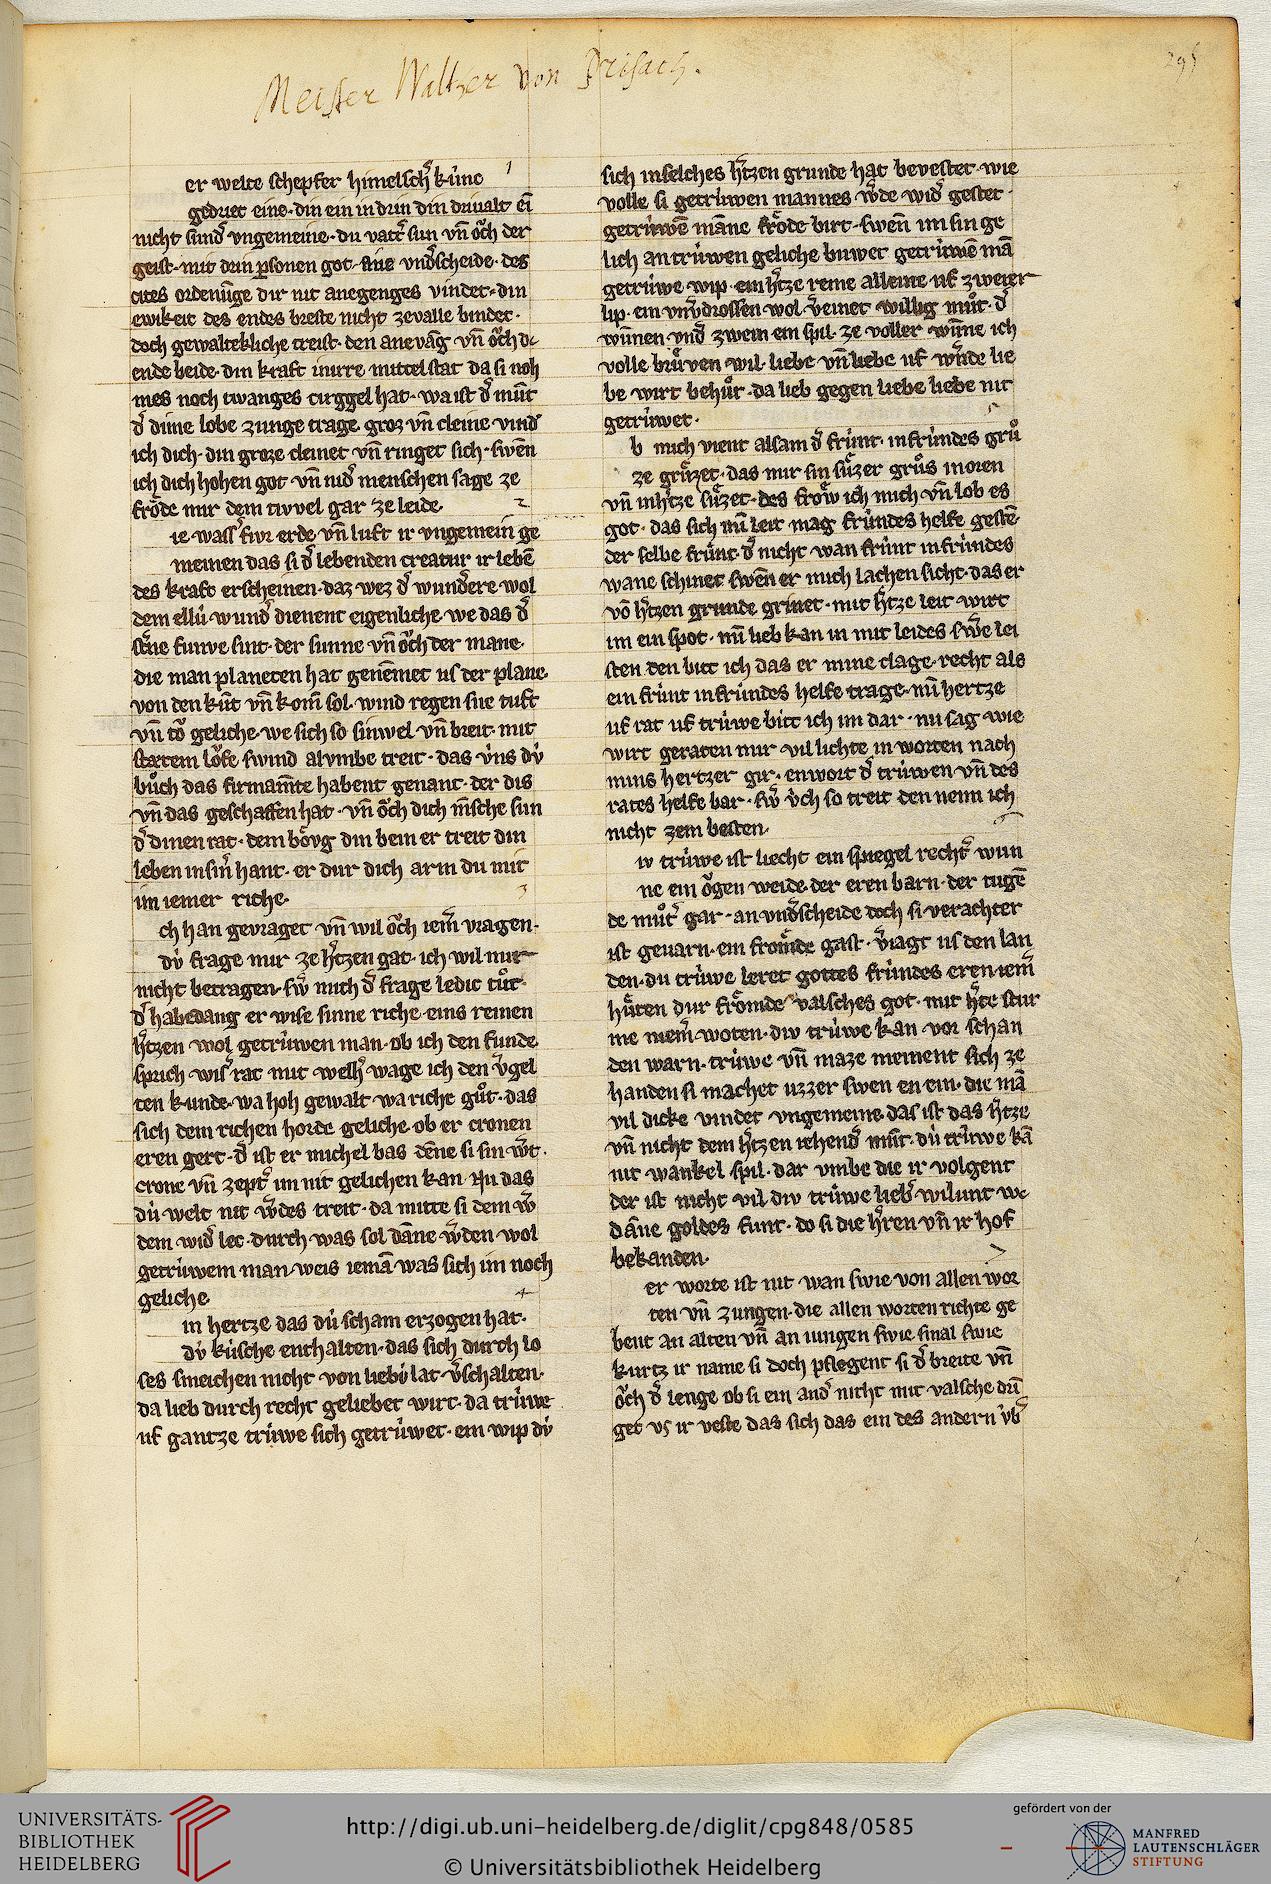 Meister Waltzer von Prisach.
295
er welte schepfer himelsch͛ kúnc 1
gedriet eine· din ein in drin din drivalt eī
nicht sūnd͛ vngemeine· du vatt͛ sun vn̄ oͮch der
geist· mit drin ꝑsonen got· ane vnd͛scheide· des
cites ordenūge dir nit anegenges vindet· din
ewikeit des endes breste nicht zevalle bindet·
doch gewaltekliche treist· den anevāg vn̄ oͮch dc
ende beide· din kraft inirre mittelstat da si noh
mes noch twanges cirggel hat· wa ist d͛ mūt
d͛ dime lobe zunge trage groz vn̄ cleine vind
ich dich· din groze cleinet vn̄ ringet sich· swēn
ich dich hohen got vn̄ nid͛ menschen sage ze
froͤde mir dem tivvel gar ze leide 2
ie wass͛ fivr erde vn̄ luft ir vngemein ge
meinen das si d͛ lebenden creatur ir lebē
des kraft erscheinen· daz wez d͛ wund͛ere wol
dem ellú wund͛ dienent eigenliche· we das d͛
st͛ne funve sint· der sunne vn̄ oͮch der mane·
die man planeten hat genēmet us der plane·
von den kūt vn̄ kom̄ sol· wind regen sne tuft
vn̄ toͮ geliche· we sich so sinwel vn̄ breit· mit
starem loͮfe swind alvmbe treit· das v́ns dv́
buͦch das firmam̄te habent genant· der dis
vn̄ das geschaffen hat· vn̄ oͮch dich m̄sche sun
d͛ dinen rat· dem boͮvg din bein er treit din
leben in sin͛ hant· er dur dich arm du mit
im iemer riche· 3
ch han gevraget vn̄ wil oͮch iem͛ vragen·
dv́ frage mir ze h͛tzen gat· ich wil mir
nicht betragen· sw͛ mich d͛ frage ledic tuͦt·
d͛ habe dang er wise sinne riche· eins reinen
h͛tzen wol getrúwen man· ob ich den funde
sprich wis͛ rat mit welh͛ wage ich den v͛gel
ten kunde· wa hoh gewalt wa riche guͦt· das
sich dem richen horde geliche· ob er cronen
eren gert· d͛ ist er michel bas dēne si sin w͛t·
crone vn̄ zept͛ im nit gelichen kan· Nu das
dú welt nit w͛des treit· da mitte si dem w͛
dem wid͛ lec· durch was sol dāne w͛den wol
getrúwem man· weis iemā was sich im noch
geliche 4
in hertze das dú scham erzogen hat·
dv́ kúsche enthalten· das sich durch lo
ses smeichen nicht von liebi lat v͛schalten·
da lieb durch recht geliebet wirt· da trúwe
uf gantze trúwe sich getrúwet· ein wip dv́
sich in selches h͛tzen grunde hat bevestet· wie
volle si getrúwen mannes w͛de wid͛ gestet·
getrúwē māne froͤde birt· swēn im sin ge
lich an trúwen geliche buwet getrúwē mā
getrúwe wip· ein h͛tze reine alleine uf zweier
lip· ein vnv͛drossen wol v͛einet willig muͦt· d͛
wūnen vnd͛ zwein ein spil· ze voller wūne ich
volle bruͤven wil· liebe vn̄ liebe uf w͛nde lie
be wirt behuͦt· da lieb gegen liebe liebe nit
getrúwet·
b mich vient alsam d͛ frúnt· in frúndes gruͦ
ze gruͤzet· das mir sin suͤzer gruͦs inoren
vn̄ in h͛tze suͤzet· des froͤw ich mich vn̄ lob es
got· das sich mī leit mag frúndes helfe gestē·
der selbe frúnt· d͛ nicht wan frúnt in frúndes
wane schinet swēn er mich lachen sicht· das er
vō h͛tzen grunde grinet· mit h͛tze leit wirt
im ein spot· mī lieb kan in mit leides sw͛e lei
sten den bitt ich das er mine clage· recht als
ein frúnt in frúndes helfe trage· mī hertze
uf rat uf trúwe bitt ich im dar· nu sag wie
wirt geraten mir vil lichte in worten nach
mins hertzer gir· enwort d͛ trúwen vn̄ des
rates helfe bar· sw͛ v́ch so treit den nenn ich
nicht zem besten·
iv trúwe ist liecht ein spiegel recht͛ wun
ne ein oͮgen weide· der eren barn· der tugē
de muͦt͛ gar· an vnd͛scheide doch si verachter
ist gevarn· ein froͤmde gast· v͛iagt us den lan
den· du trúwe leret gottes frúndes eren iem͛
huͤten dur froͤmde valsches got· mit h͛te stur
me niem͛ woten· div trúwe kan vor schan
den warn· trúwe vn̄ maze mement sich ze
handen si machet uzzer swen en ein· die mā
vil dicke vindet vngemeine· das ist das h͛tze
vn̄ nicht dem h͛tzen iehend͛ mūt· dú trúwe kā
nit wankel spil· dar vmbe die ir volgent
der ist nicht vil div trúwe lieb͛ wilunt we
dāne goldes funt· do si die h͛ren vn̄ ir hof
bekanden·
er worte ist nit wan swie von allen wor
ten vn̄ zungen· die allen worten richte ge
bent an alten vn̄ an iungen swie smal swie
kurtz ir name si doch pflegent si d͛ breite vn̄
oͮch d͛ lenge ob si ein and͛ nicht mit valsche drī
get vs ir veste das sich das ein des andern v́b͛
UNIVERSITÄTS-
BIBLIOTHEK
HEIDELBERG
http://digi.ub.uni-heidelberg.de/diglit/cpg848/0585
© Universitätsbibliothek Heidelberg
gefördert von der
MANFRED
LAUTENSCHLÄGER
STIFTUNG